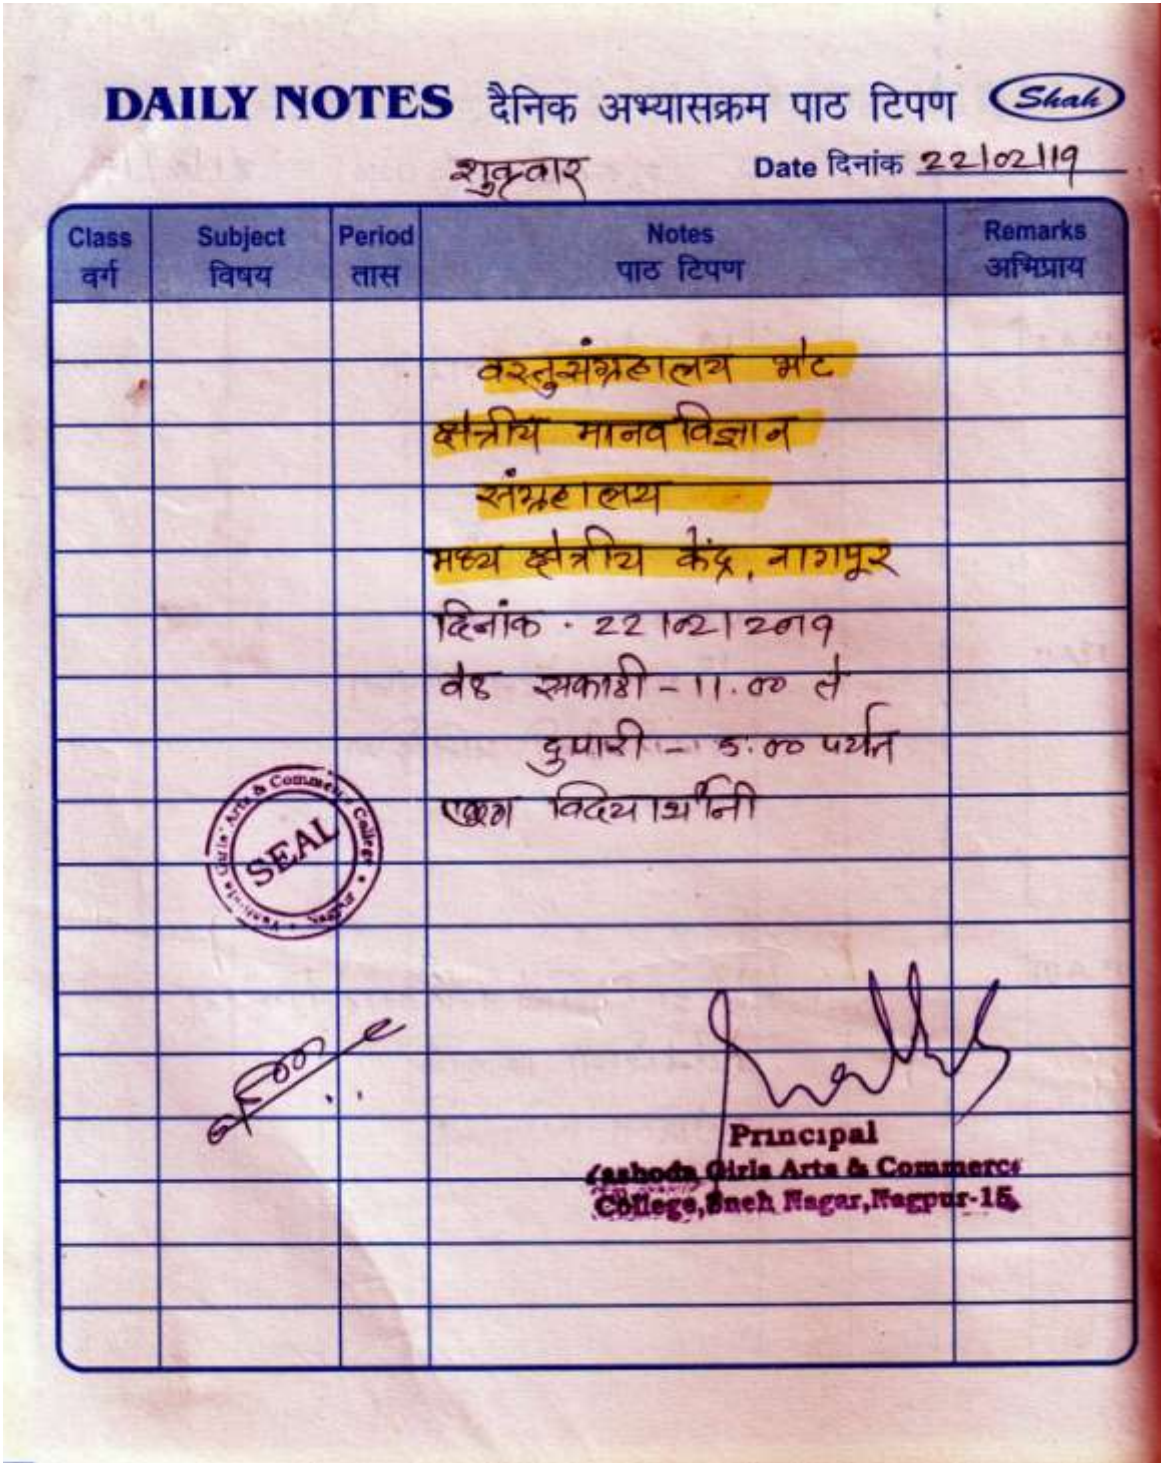 DAILY NOTES दैनिक अभ्यासक्रम पाठ टिपण Shah
शुक्रवार Date दिनांक 22/02/19
Class Subject Period Notes Remarks
वर्ग विषय तास पाठ टिपण अभिप्राय
वस्तुसंग्रहालय भेट
क्षेत्रीय मानव विज्ञान
संग्रहालय
मध्य क्षेत्रीय केंद्र, नागपूर
दिनांक - 22/02/2019
वेळ सकाळी - 11.00 ते
दुपारी - 5.00 पर्यंत
विद्यार्थीनी
Girls' Arts & Commerce College
SEAL
Principal
Yashoda Girls Arts & Commerce
College, Sneh Nagar, Nagpur-15